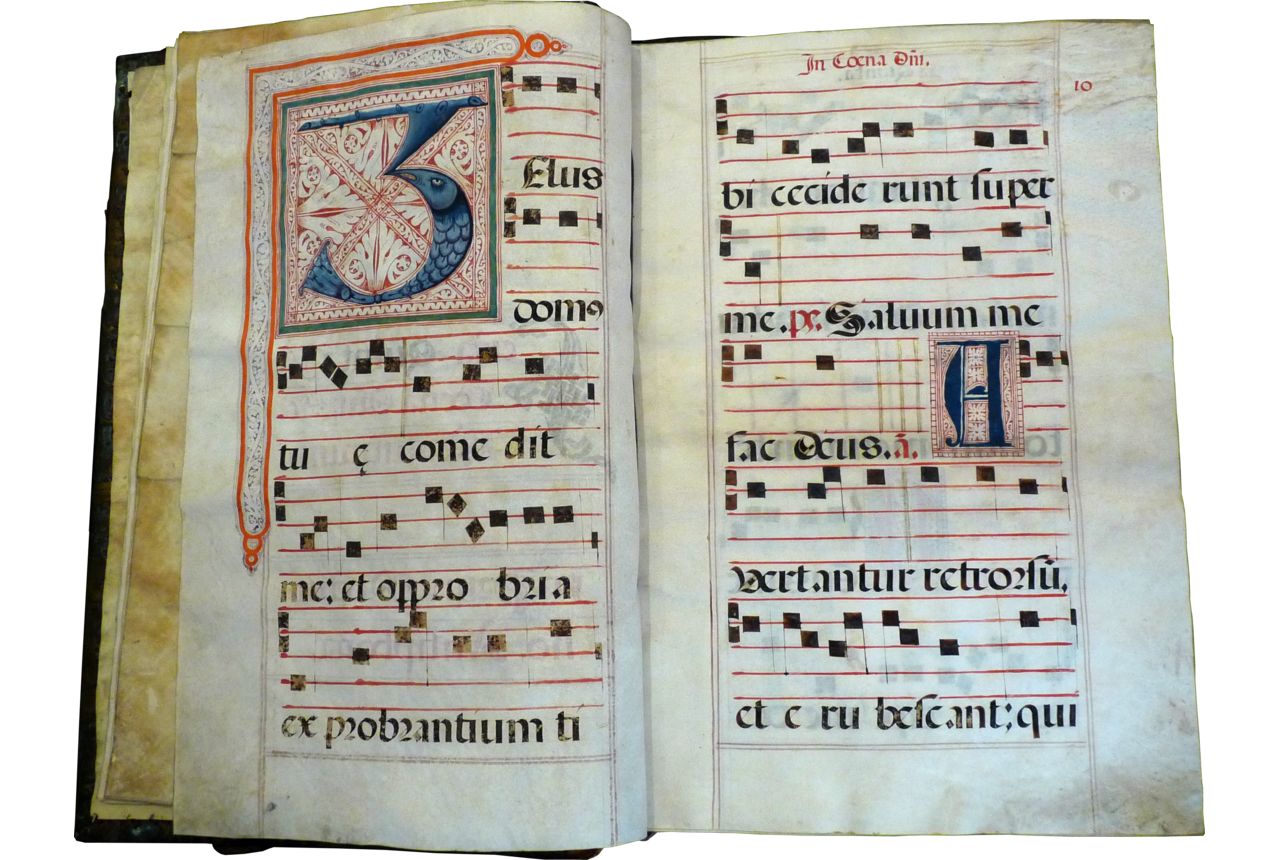 ZElus
domꝰ
tu ę come dit
me: et oppro bria
ex probrantium ti
In Cœna Dñi.
10
bi cecide runt super
me. ps. Saluum me
fac Deus. ã. A
vertantur retrorsũ,
et e ru bescant; qui